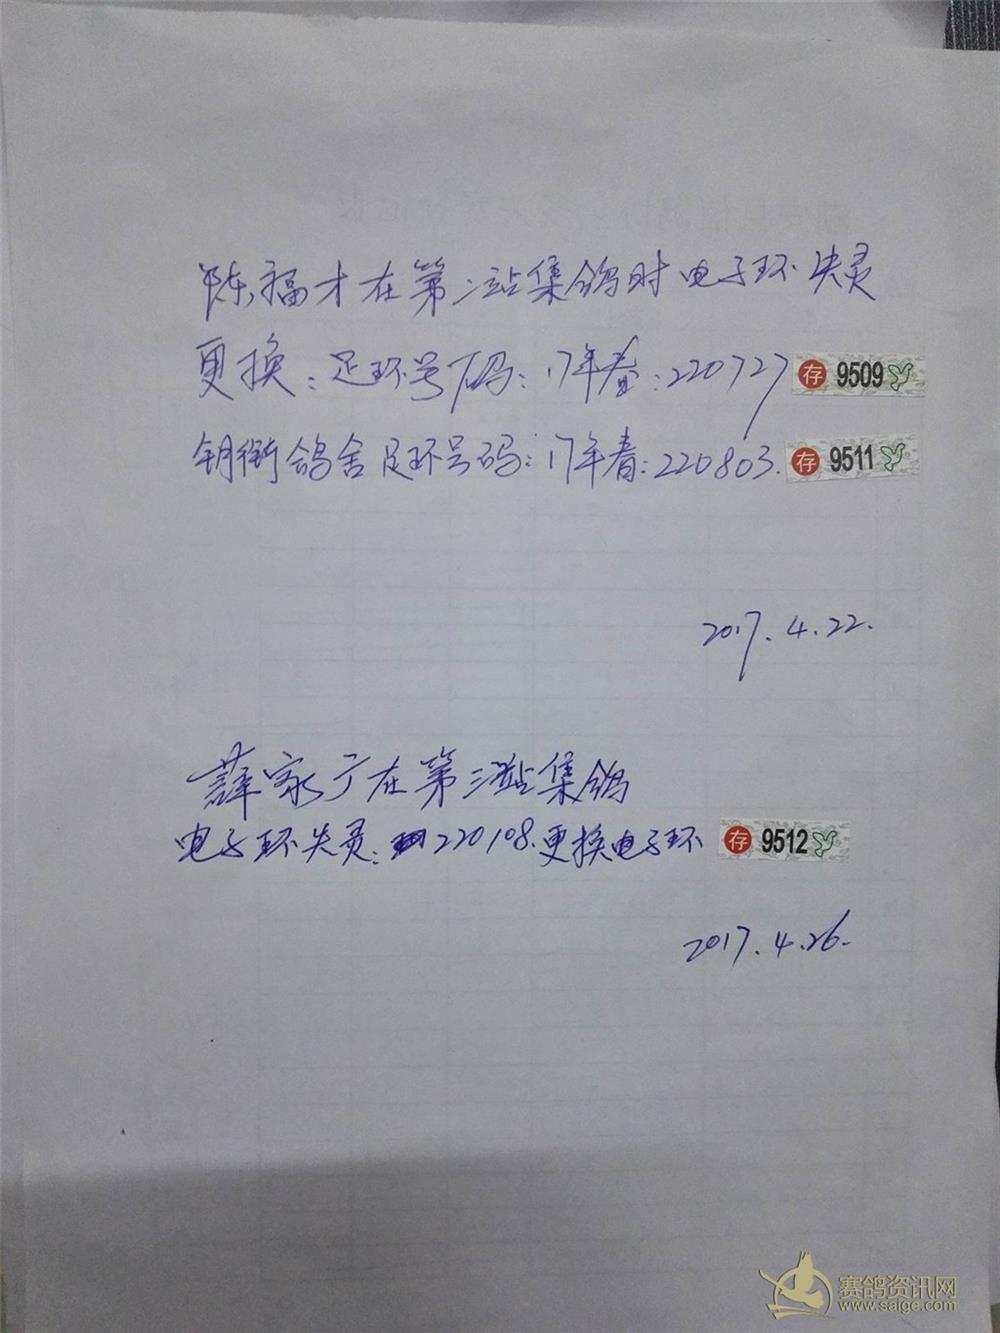 陈福才在第二站集鸽时电子环失灵
更换：足环号码：17年春：220727 存 9509
钥衔鸽舍足环号码：17年春：220803. 存 9511
2017.4.22.
薛家于在第三站集鸽
电子环失灵：220108.更换电子环 存 9512
2017.4.26.
赛鸽资讯网
www.saige.com